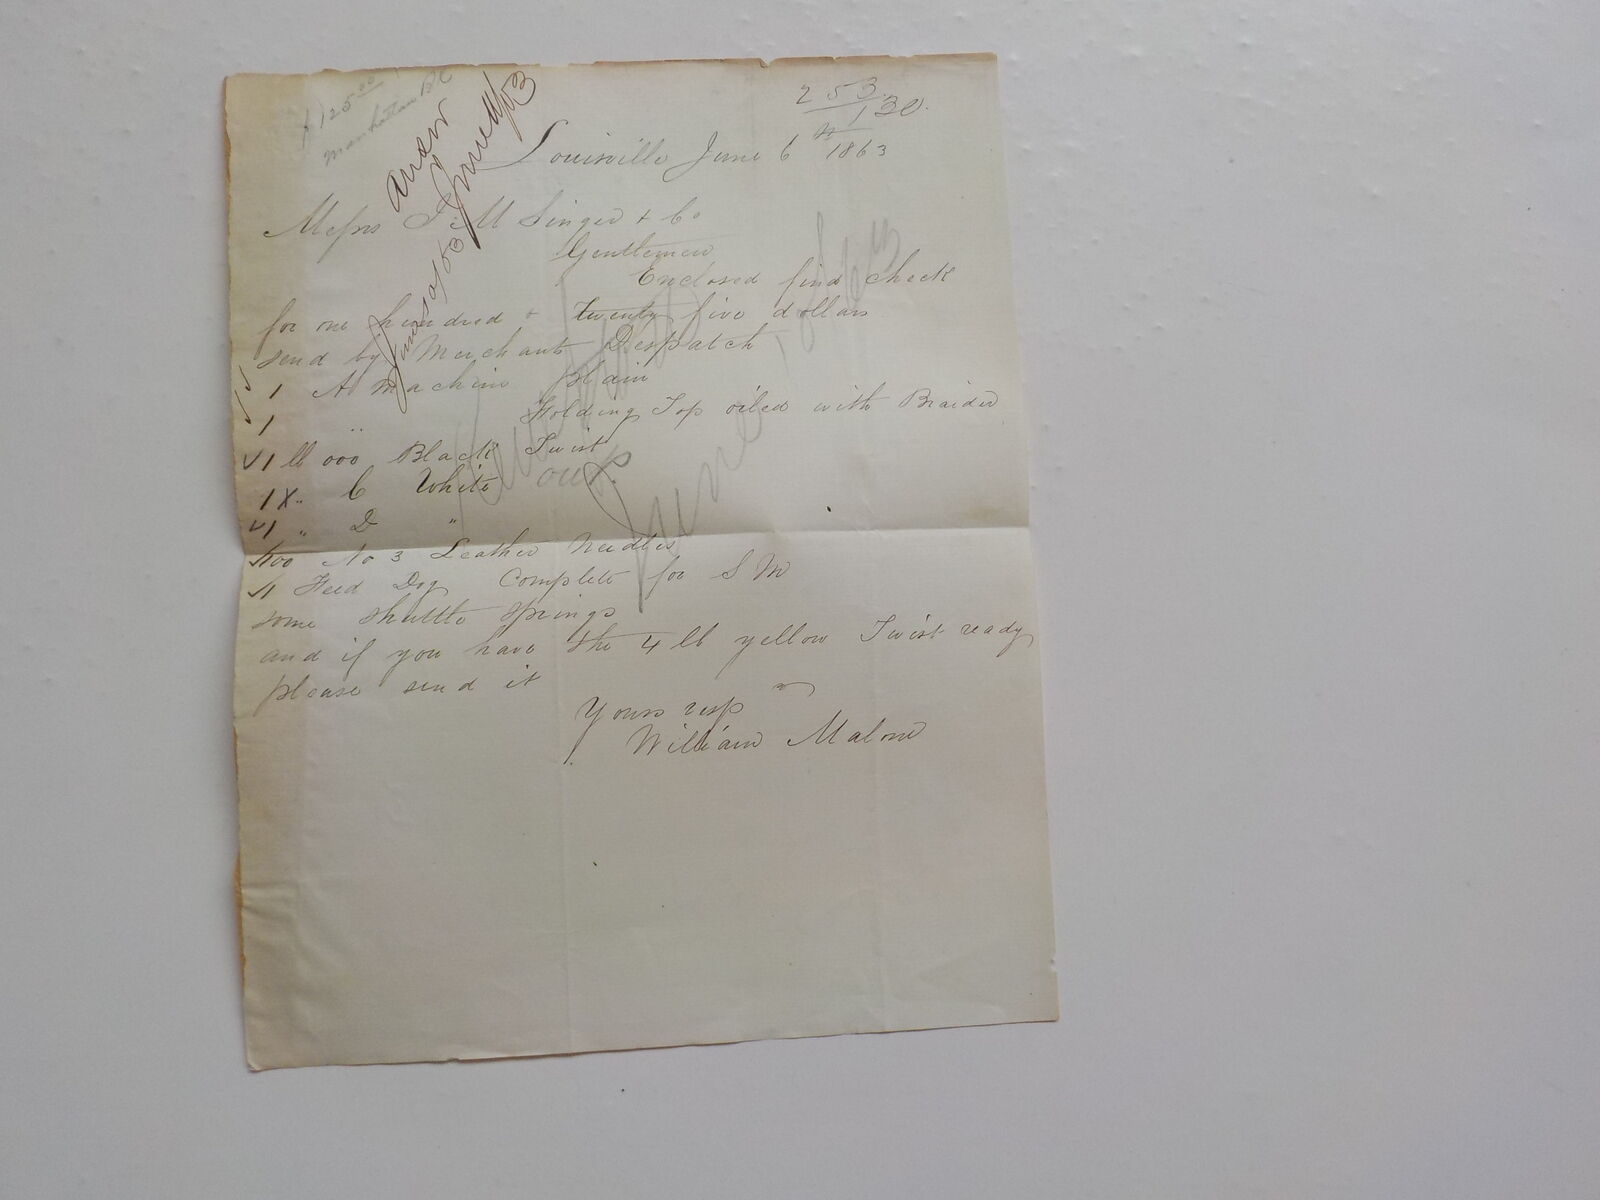 $125.00
Manhattan Bk
Answ
June 10/63
253
1 30.
4
Louisville June 6 1863
Messrs I. M Singer & Co
Gentlemen
Enclosed find check
for one hundred & Twenty five dollars
send by Merchants Despatch
1 A Machine plain
1 " Folding Top oiled with Braider
1 lb 000 Black Twist
1 X " C White out
1 " D "
100 No 3 Leather Needles
1 Feed Dog Complete for S M
some shuttle springs
and if you have the 4 lb yellow Twist ready
please send it
Yours resp
William Malone